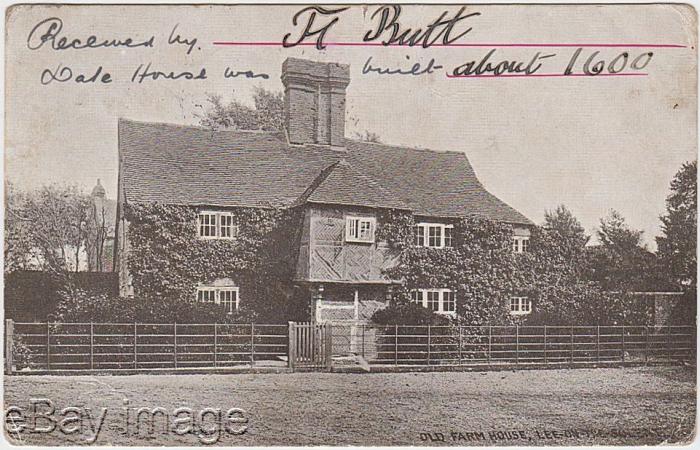 Received by H Butt
Date House was built about 1600
eBay-image
OLD FARM HOUSE, LEE-ON-THE-SOLENT